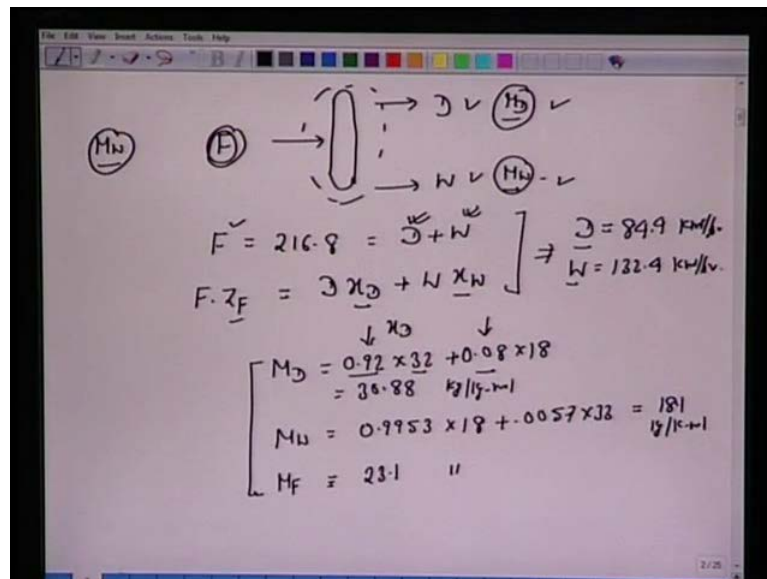 File Edit View Insert Actions Tools Help
B I
MW F → → D ✓ MD ✓
→ W ✓ MW - ✓
F = 216.8 = D + W ] ⇒ D = 84.9 KM/hr.
F. ZF = D xD + W xW W = 132.4 KM/hr.
↓ xD ↓
MD = 0.92 × 32 + 0.08 × 18
= 30.88 kg/kg-mol
MW = 0.9953 × 18 + .0057 × 32 = 18.1
kg/k-mol
MF = 23.1 "
2/25